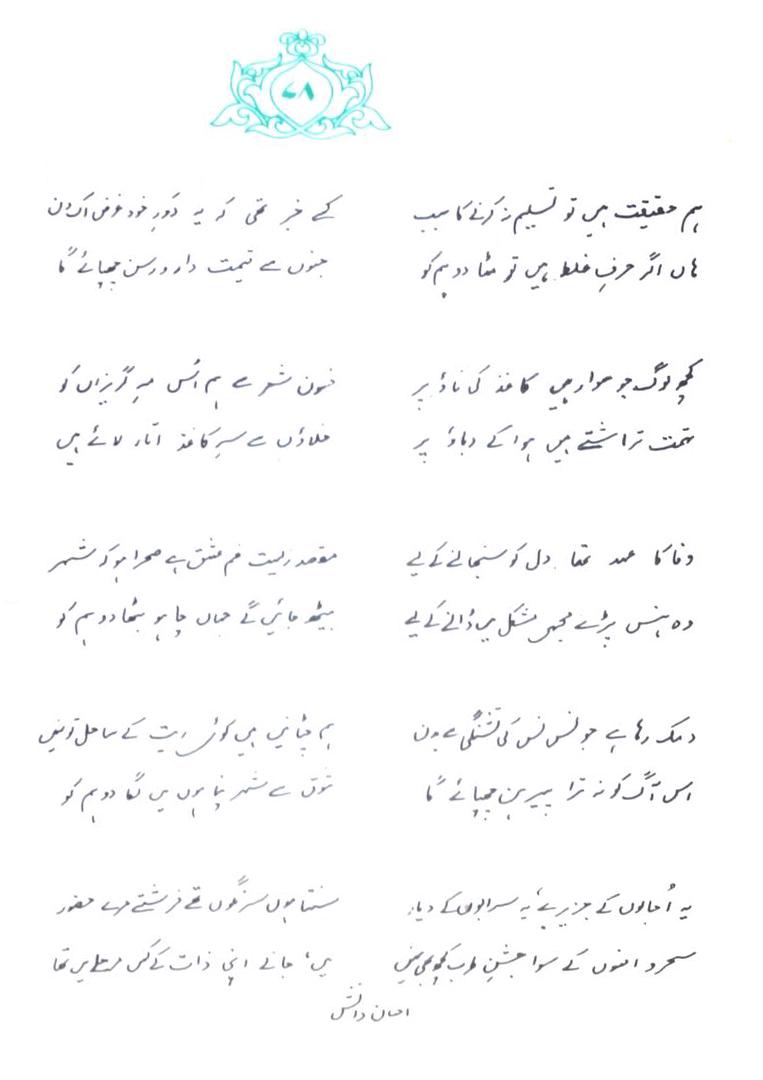 ۷۸
ہم حقیقت ہیں تو تسلیم نہ کرنے کا سبب
ہاں اگر حرفِ غلط ہیں تو مٹا دو ہم کو
کسے خبر تھی کہ یہ دَورِ خود غرض اک دن
جنوں سے قیمت دار و رسن چھپائے گا
کچھ لوگ جو سوار ہیں کاغذ کی ناؤ پر
تہمت تراشتے ہیں ہوا کے دباؤ پر
فسونِ شعر سے ہم اُس مہِ گریزاں کو
خلاؤں سے سرِ کاغذ اتار لائے ہیں
وفا کا عہد تھا دل کو سنبھالنے کے لیے
وہ ہنس پڑے مجھے مشکل میں ڈالنے کے لیے
مقصد زیست غم عشق ہے صحرا ہو کہ شہر
بیٹھ جائیں گے جہاں چاہو بٹھا دو ہم کو
دمک رہا ہے جو نس نس کی تشنگی سے بدن
اس آگ کو نہ ترا پیرہن چھپائے گا
ہم چٹانیں ہیں کوئی ریت کے ساحل تو نہیں
شوق سے شہر پناہوں میں لگا دو ہم کو
یہ اُجالوں کے جزیرے، یہ سرابوں کے دیار
سحر و افسوں کے سوا جشنِ طرب کچھ بھی نہیں
سنتا ہوں سرنگوں تھے فرشتے مرے حضور
میں، جانے اپنی ذات کے کس مرحلے میں تھا
احسان دانش